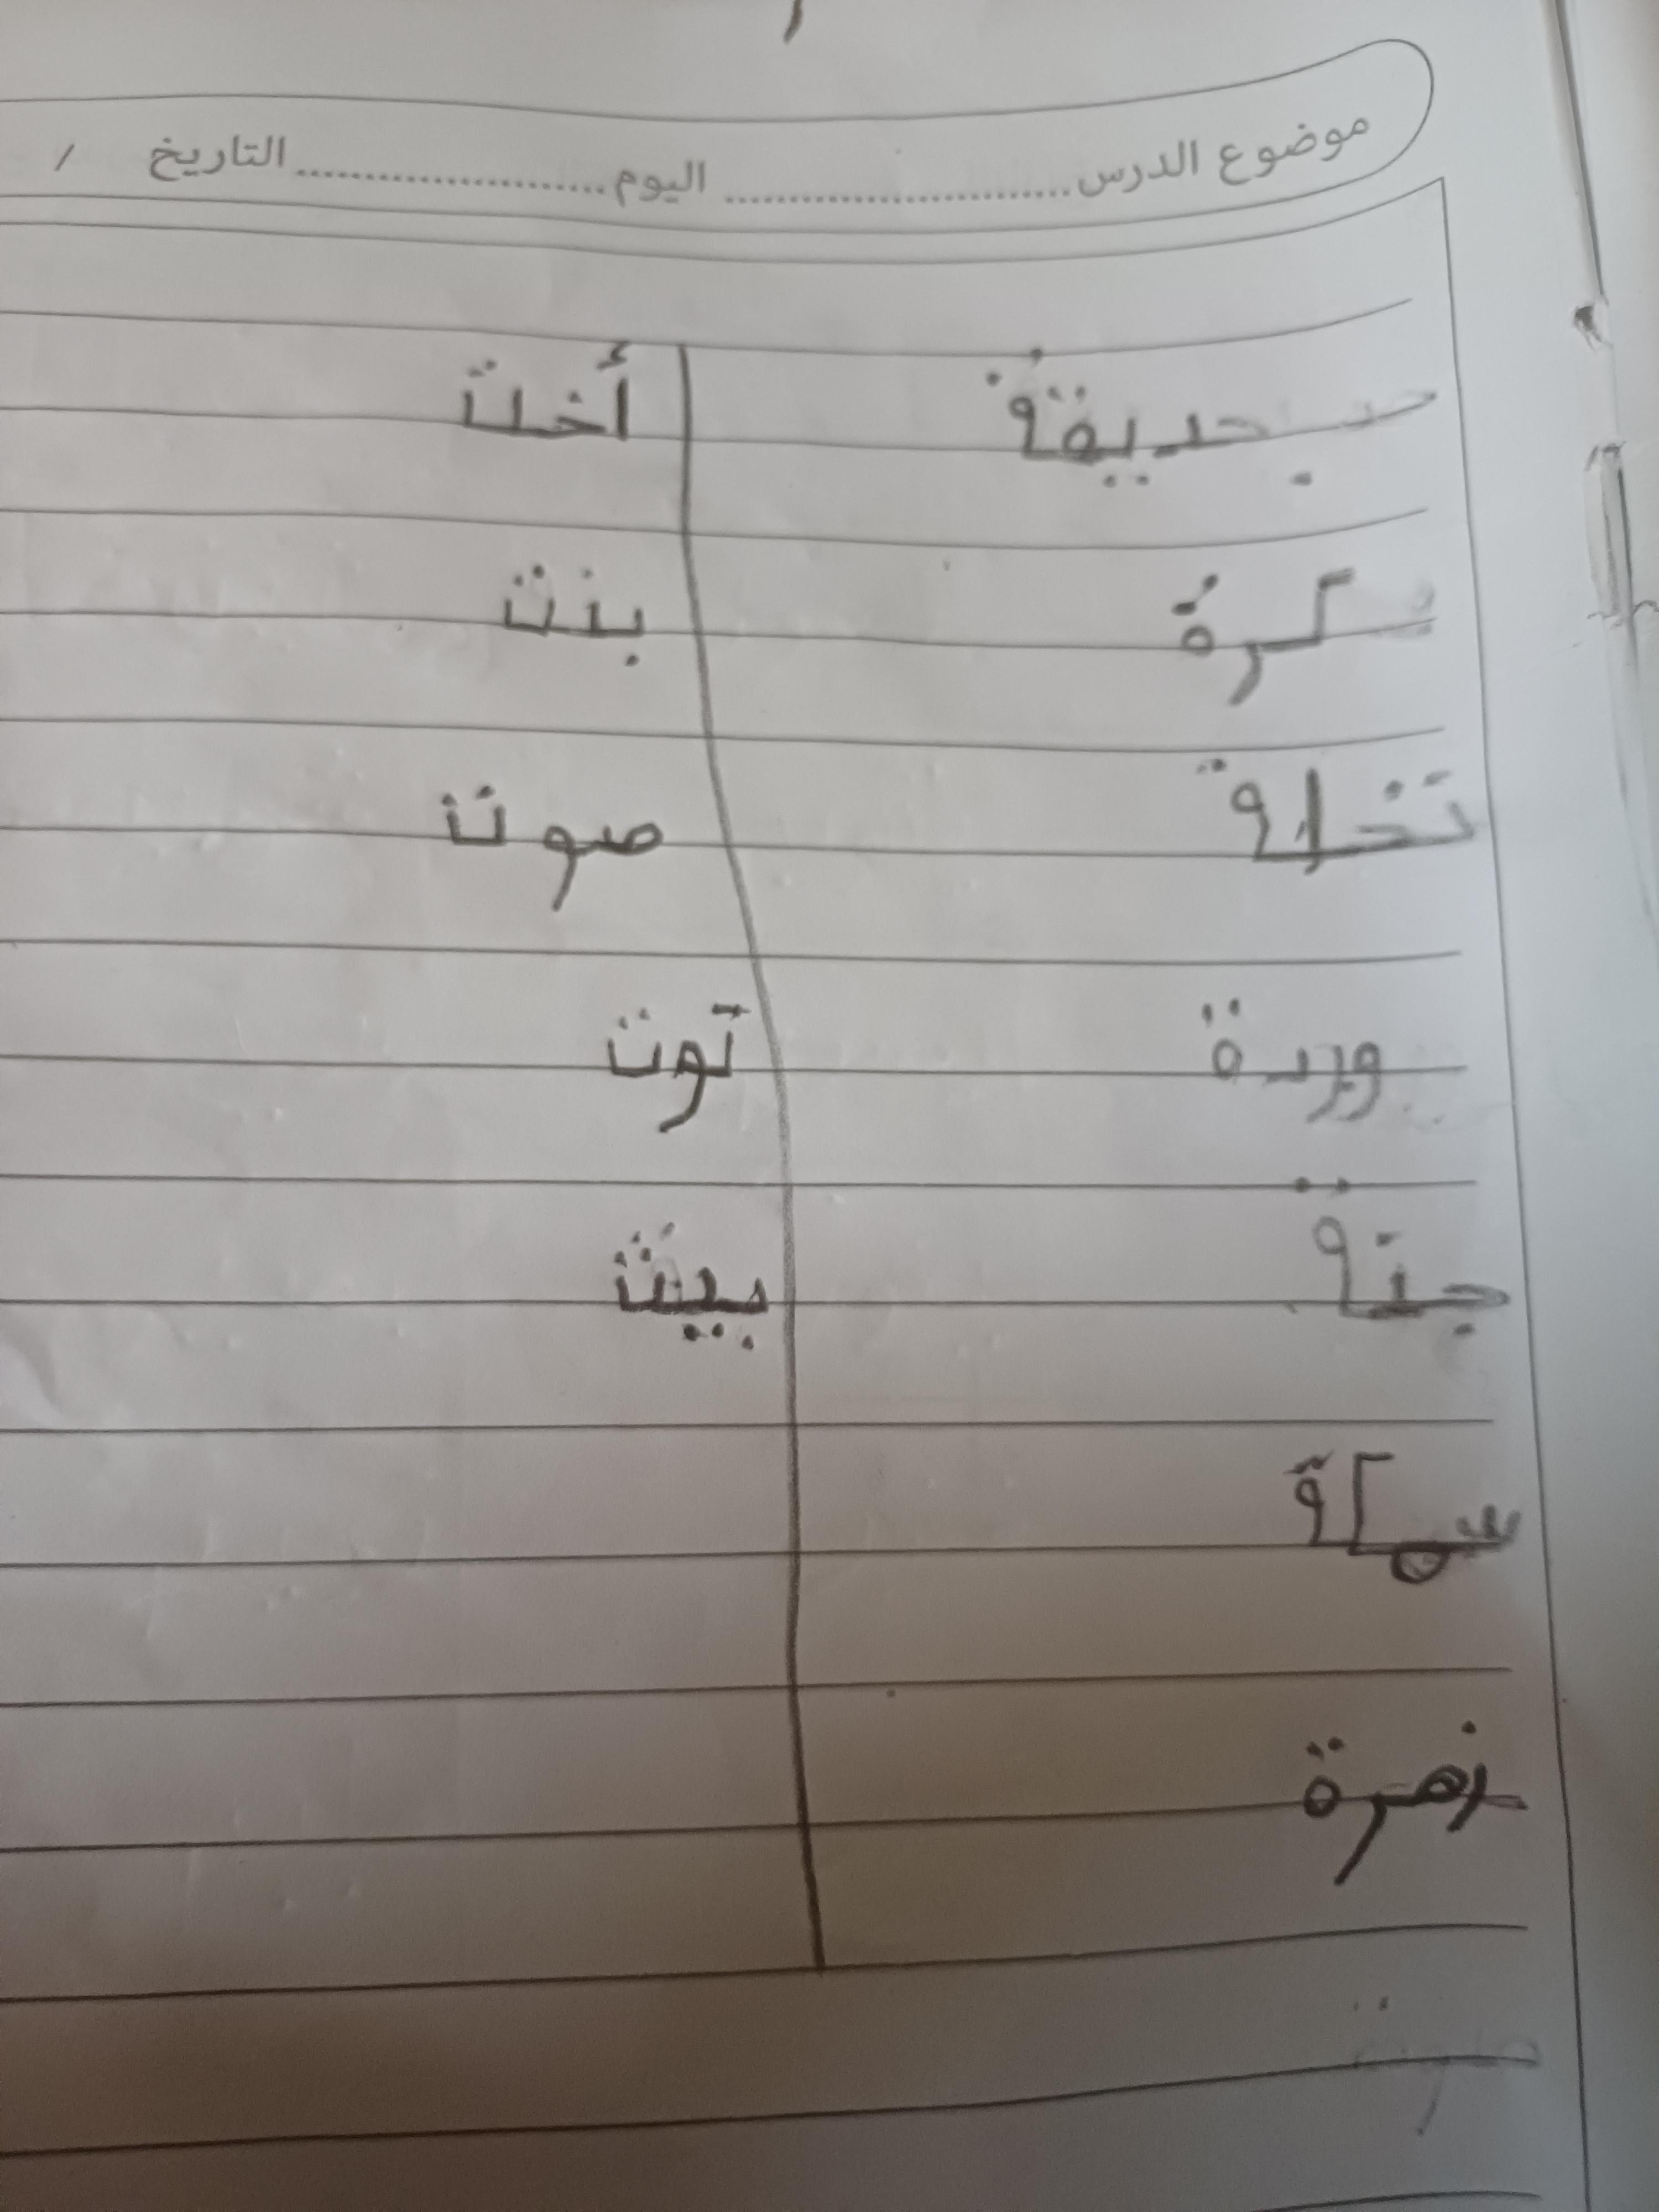 موضوع الدرس .................... اليوم .................... التاريخ /
جديقة أخلت
كرة بنت
تخلة صوت
وردة توت
جنة بيت
سمكة
زهرة